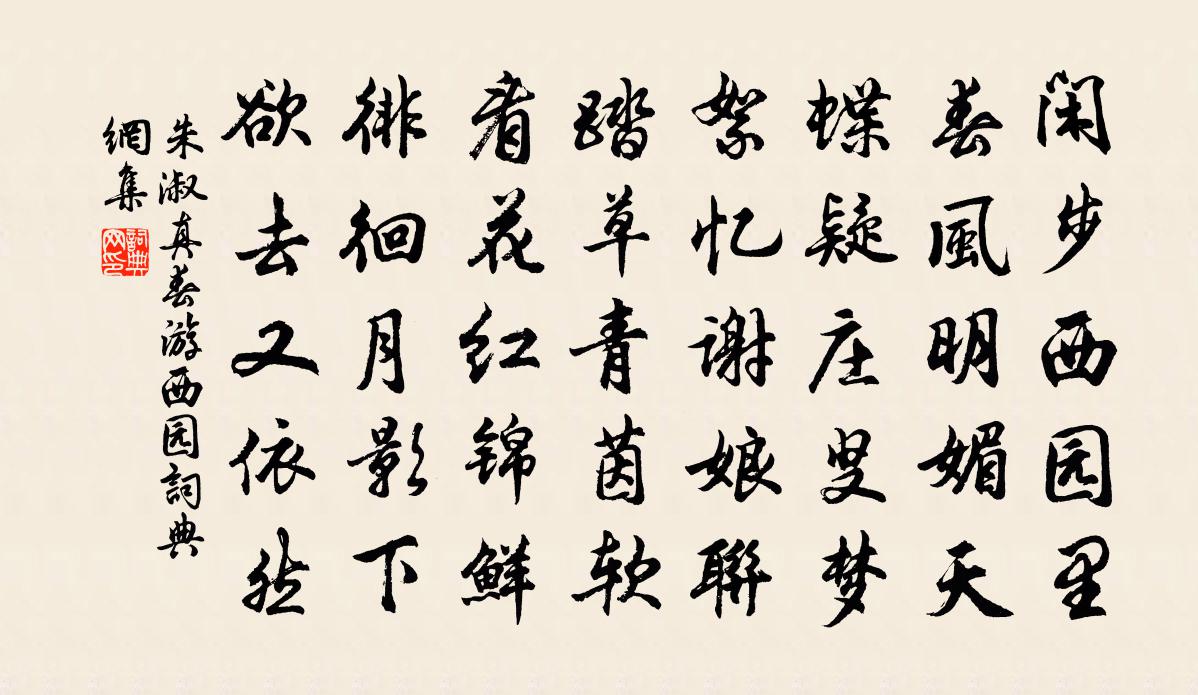 闲步西园里
春風明媚天
蝶疑庄叟梦
絮忆谢娘聯
踏草青茵软
看花红锦鮮
徘徊月影下
欲去又依然
朱淑真春游西园詞典
網集
詞典
网印